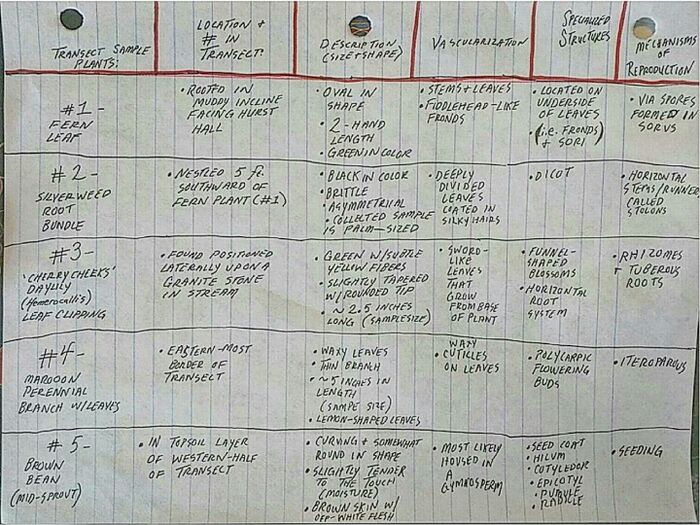 TRANSECT SAMPLE
PLANTS:
LOCATION +
# IN
TRANSECT:
DESCRIPTION
(SIZE + SHAPE)
VASCULARIZATION
SPECIALIZED
STRUCTURES
MECHANISMS
OF
REPRODUCTION
#1 -
FERN
LEAF
• ROOTED IN
MUDDY INCLINE
FACING HURST
HALL
• OVAL IN
SHAPE
• 2-HAND
LENGTH
• GREEN IN COLOR
• STEMS + LEAVES
• FIDDLEHEAD-LIKE
FRONDS
• LOCATED ON
UNDERSIDE
OF LEAVES
(i.e. FRONDS)
+ SORI
• VIA SPORES
FORMED IN
SORUS
#2 -
SILVERWEED
ROOT
BUNDLE
• NESTLED 5 ft.
SOUTHWARD OF
FERN PLANT (#1)
• BLACK IN COLOR
• BRITTLE
• ASYMMETRICAL
• COLLECTED SAMPLE
IS PALM-SIZED
• DEEPLY
DIVIDED
LEAVES
COATED IN
SILKY HAIRS
• DICOT
• HORIZONTAL
STEMS/RUNNERS
CALLED
STOLONS
#3 -
'CHERRY CHEEKS'
DAYLILY
(Hemerocallis)
LEAF CLIPPING
• FOUND POSITIONED
LATERALLY UPON A
GRANITE STONE
IN STREAM
• GREEN W/SUBTLE
YELLOW FIBERS
• SLIGHTLY TAPERED
W/ROUNDED TIP
• ~ 2.5 INCHES
LONG (SAMPLE SIZE)
• SWORD-
LIKE
LEAVES
THAT
GROW
FROM BASE
OF PLANT
• FUNNEL-
SHAPED
BLOSSOMS
• HORIZONTAL
ROOT
SYSTEM
• RHIZOMES
+ TUBEROUS
ROOTS
#4 -
MAROOON
PERENNIAL
BRANCH W/LEAVES
• EASTERN-MOST
BORDER OF
TRANSECT
• WAXY LEAVES
• THIN BRANCH
• ~ 5 INCHES IN
LENGTH
(SAMPE SIZE)
• LEMON-SHAPED LEAVES
• WAXY
CUTICLES
ON LEAVES
• POLYCARPIC
FLOWERING
BUDS
• ITEROPAROUS
#5 -
BROWN
BEAN
(MID-SPROUT)
• IN TOPSOIL LAYER
OF WESTERN-HALF
OF TRANSECT
• CURVING + SOMEWHAT
ROUND IN SHAPE
• SLIGHTLY TENDER
TO THE TOUCH
(MOISTURE)
• BROWN SKIN W/
OFF-WHITE FLESH
• MOST LIKELY
HOUSED IN
A
GYMNOSPERM
• SEED COAT
• HILUM
• COTYLEDOR
• EPICOTYL
• PLUMULE
• RADICLE
• SEEDING